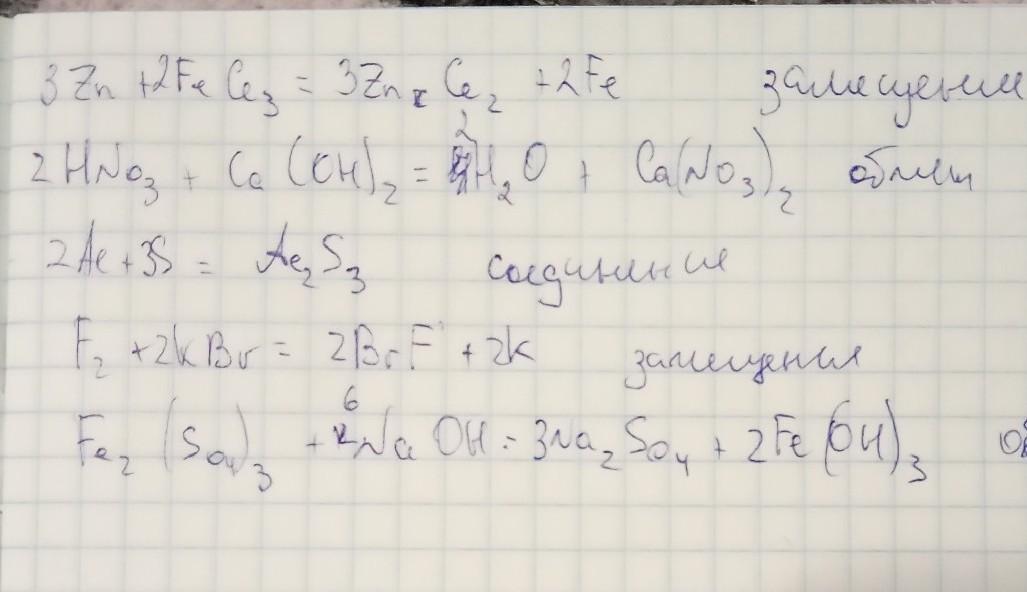 3Zn + 2FeCl₃ = 3ZnCl₂ + 2Fe замещение
2HNO₃ + Ca(OH)₂ = 2H₂O + Ca(NO₃)₂ обмен
2Al + 3S = Al₂S₃ соединение
F₂ + 2KBr = 2BrF + 2K замещения
Fe₂(SO₄)₃ + 6NaOH = 3Na₂SO₄ + 2Fe(OH)₃